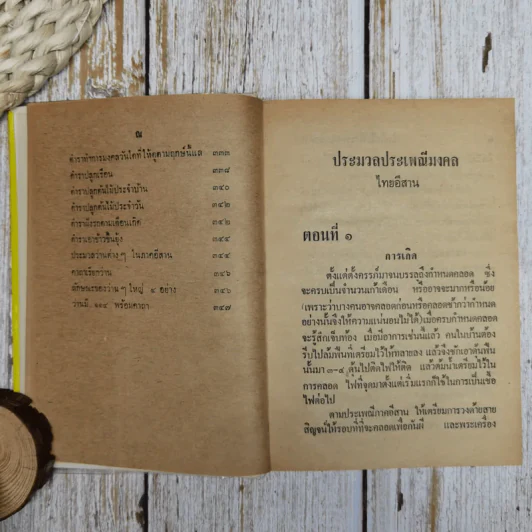 ณ
ตำราทำการมงคลวันใดที่ให้ดูตามฤกษ์นี้แล ๓๓๓
ตำราปลูกเรือน ๓๓๘
ตำราปลูกต้นไม้ประจำบ้าน ๓๔๐
ตำราปลูกต้นไม้ประจำวัน ๓๔๒
ตำรา ๓๔๒
ตำราเอาข้าวขึ้นยุ้ง ๓๔๔
ประมวลว่านต่างๆ ในภาคอีสาน ๓๔๔
คาถาเรียกว่าน ๓๔๖
ลักษณะของว่านๆ ใหญ่ ๔ อย่าง ๓๔๖
ว่านมี ๑๑๔ พร้อมคาถา ๓๔๗
ประมวลประเพณีมงคล
ไทยอีสาน
ตอนที่ ๑
การเกิด
ตั้งแต่ตั้งครรภ์มาจนบรรลุถึงกำหนดคลอด ซึ่ง
จะครบเป็นจำนวนเก้าเดือน หรืออาจจะมากหรือน้อย
(เพราะว่าบางคนอาจคลอดก่อนหรือคลอดช้ากว่ากำหนด
อย่างนั้นจึงให้ความแน่นอนไม่ได้) เมื่อครบกำหนดคลอด
จะรู้สึกเจ็บท้อง เมื่อมีอาการเช่นนี้แล้ว คนในบ้านต้อง
รีบไปล้มฟืนที่เตรียมไว้ให้ทลายลง แล้วจึงชักเอาดุ้นฟืน
นั้นมา ๓-๔ ดุ้นไปติดไฟให้ติด แล้วต้มน้ำเตรียมไว้ใน
การคลอด ไฟที่จุดมาตั้งแต่เริ่มแรกก็ใช้ในการเป็นเชื้อ
ไฟต่อไป
ตามประเพณีภาคอีสาน ให้เตรียมการวงด้วยสาย
สิญจน์ให้รอบที่ที่จะคลอดเพื่อกันผี และพระเครื่อง